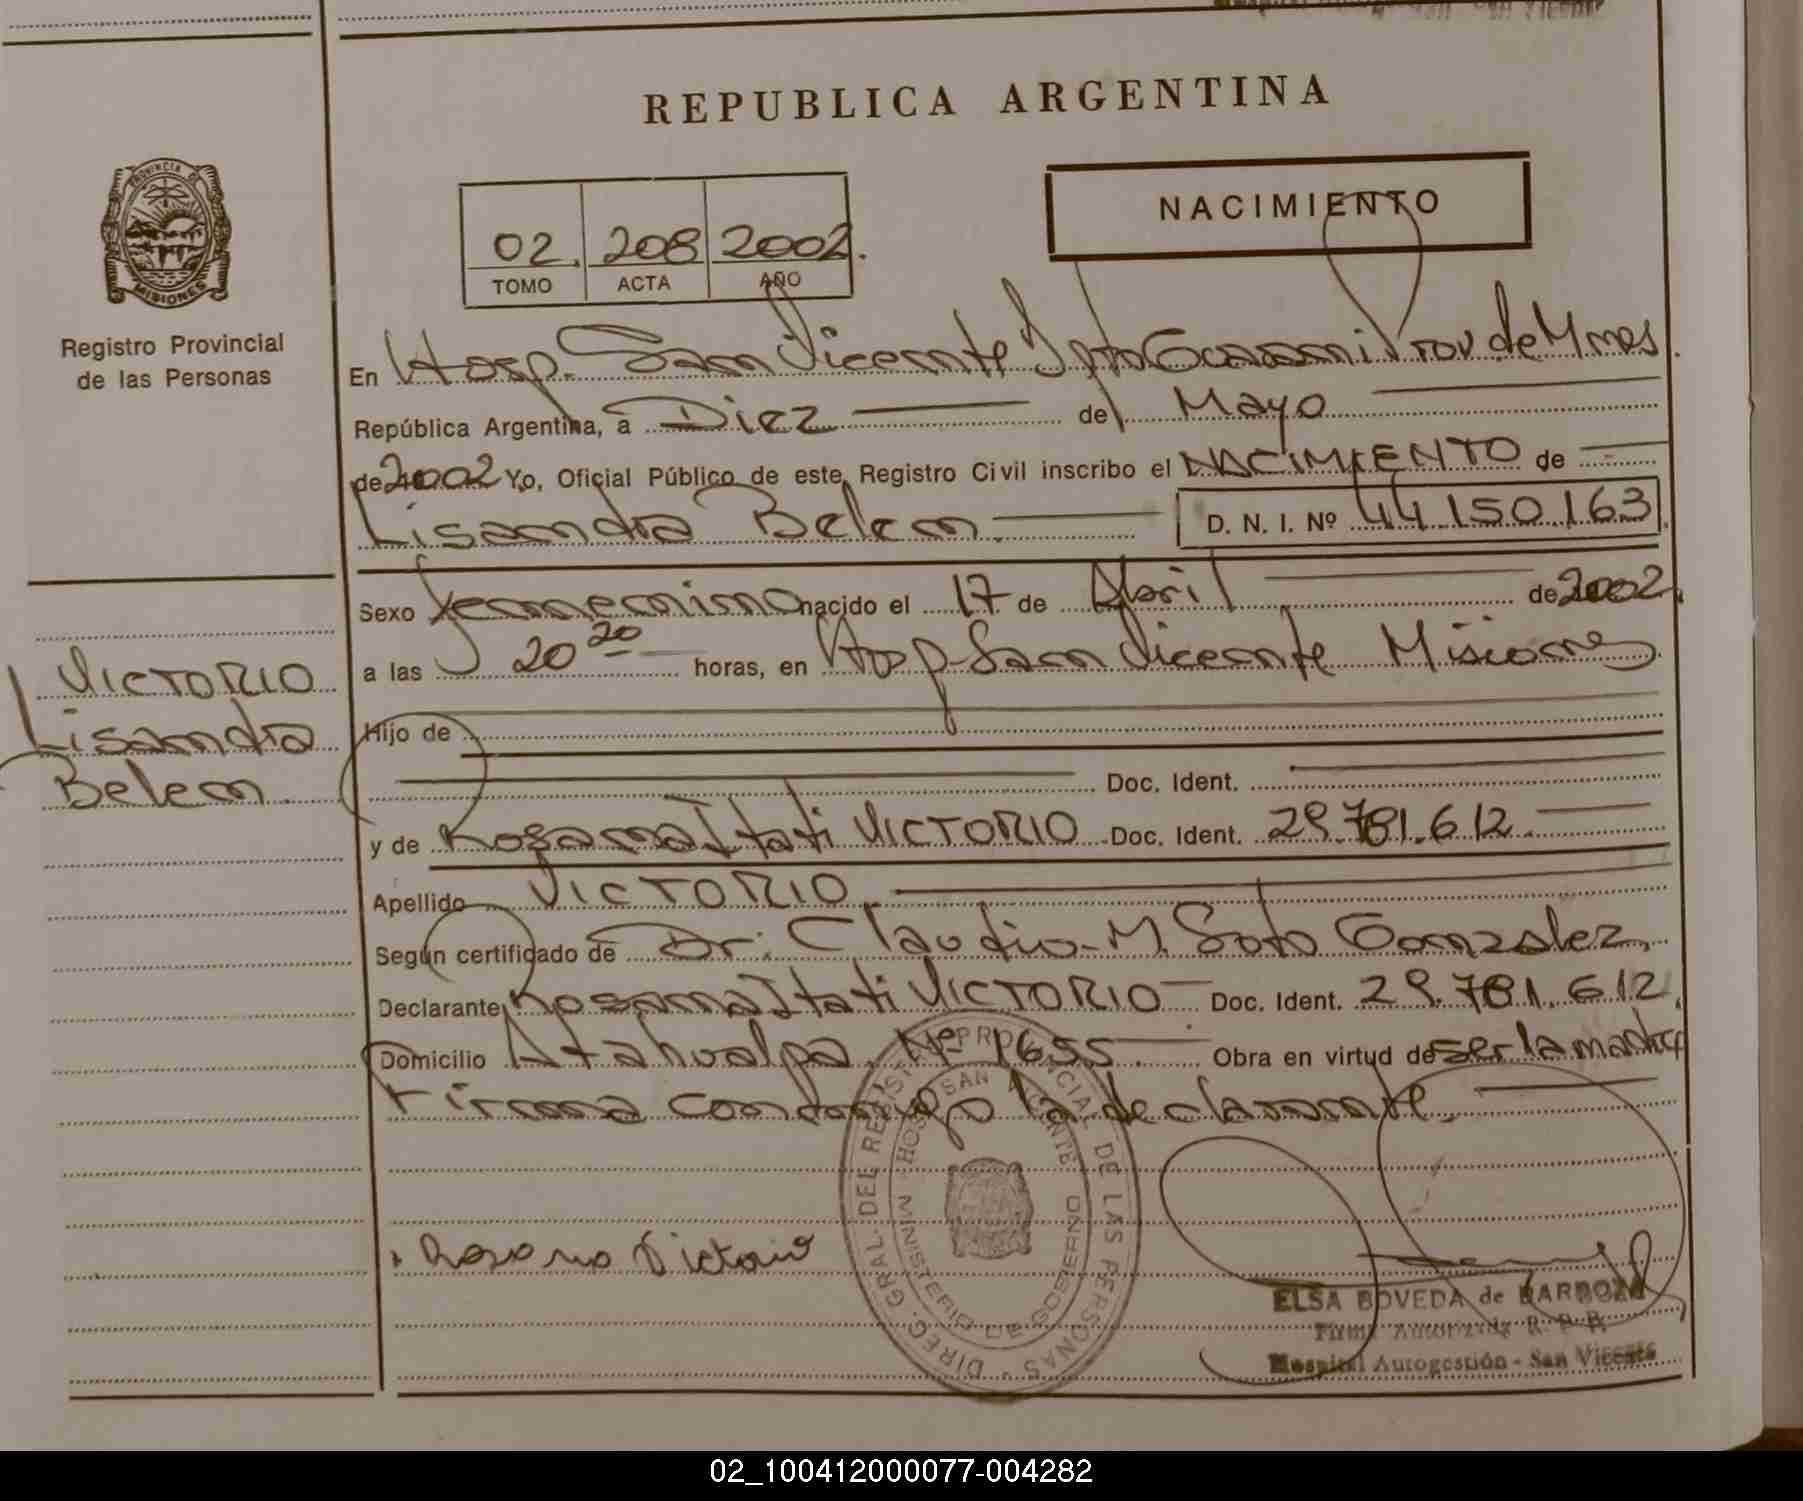 REPUBLICA ARGENTINA
PROVINCIA DE
MISIONES
Registro Provincial
de las Personas
02. 208 2002.
TOMO ACTA AÑO
NACIMIENTO
En Hosp. San Vicente Dpto Guarani Prov de Mnes.
República Argentina, a Diez de Mayo
de 2002 Yo, Oficial Público de este Registro Civil inscribo el NACIMIENTO de
Lisandra Belem. D. N. I. Nº 44.150.163
Sexo femenino nacido el 17 de Abril de 2002.
a las 20 20 horas, en Hosp San Vicente Misiones
Hijo de
Doc. Ident.
y de Rosana Itati VICTORIO Doc. Ident. 29.781.612.
Apellido VICTORIO.
Según certificado de Dr. Claudio M. Soto Gonzalez,
Declarante Rosana Itati VICTORIO Doc. Ident. 29.781.612.
Domicilio Atahualpa Nº 1655. Obra en virtud de ser la madre
Firma conmigo la declarante.
VICTORIO
Lisandra
Belem.
Rosana Victorio
DIREC. GRAL. DEL REGISTRO PROVINCIAL DE LAS PERSONAS
HOSP. SAN VICENTE
MINISTERIO DE GOBIERNO
ELSA BOVEDA de BARBOZA
Firma Autorizada R. P. P.
Hospital Autogestión - San Vicente
02_100412000077-004282